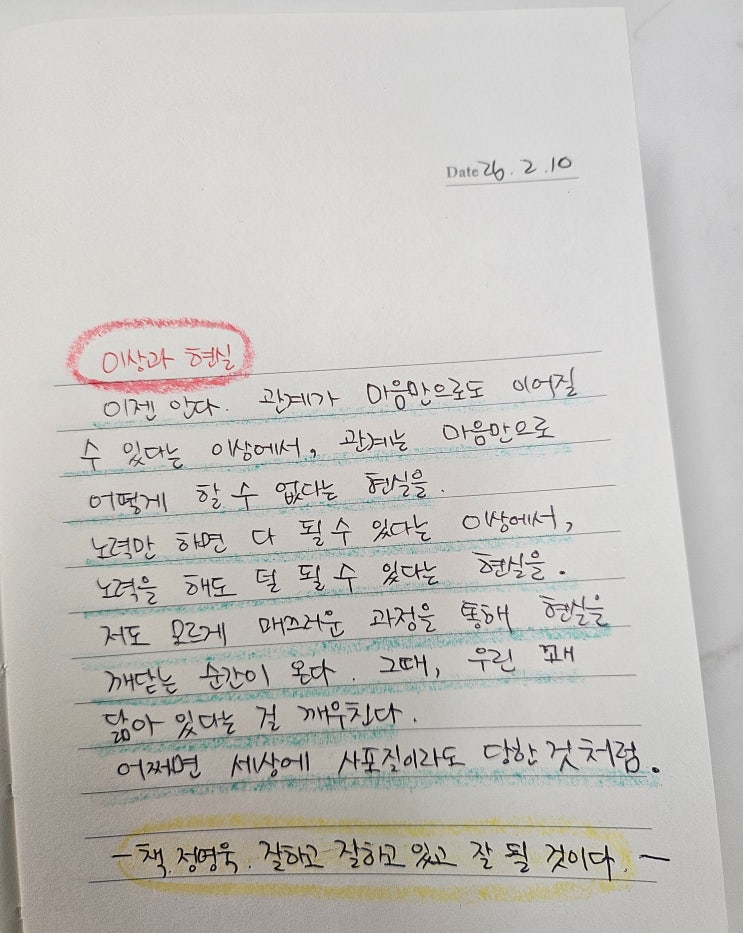 Date 26. 2. 10
이상과 현실
이젠 안다. 관계가 마음만으로도 이어질
수 있다는 이상에서, 관계는 마음만으로
어떻게 할 수 없다는 현실을.
노력만 하면 다 될 수 있다는 이상에서,
노력을 해도 덜 될 수 있다는 현실을.
저도 모르게 매끄러운 과정을 통해 현실을
깨닫는 순간이 온다. 그때, 우린 꽤
닮아 있다는 걸 깨우친다.
어쩌면 세상에 사포질이라도 당한 것처럼.
- 책. 정영욱. 잘하고 잘하고 있고 잘 될 것이다. -